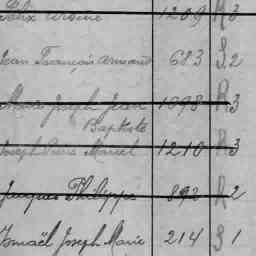 Félix Arsène 1209 R 3
Jean François Armand 683 S 2
Marie Joseph Jean 1098 R 3
Baptiste
Joseph Pierre Marcel 1210 R 3
Jacques Philippe 892 R 2
Ismaël Joseph Marie 214 S 1